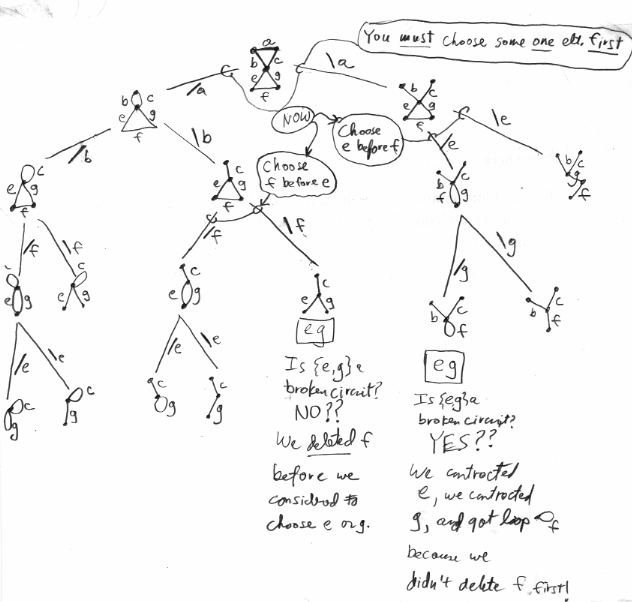 You must choose some one elt. first
a
b c
e g
f
/a
\a
b c
e g
f
b c
e
/b
\b
NOW
Choose
e before f
/e
\e
c
e g
f
c
e g
f
Choose
f before e
b c
f g
b c
g
f
/f
\f
/f
\f
/g
\g
c
e g
c
e g
c
e g
c
e g
b c
f
b c
f
/e
\e
/e
\e
c
g
c
g
c
g
c
g
eg
Is {e,g} a
broken circuit?
NO??
We deleted f
before we
considered to
choose e or g.
eg
Is {eg} a
broken circuit?
YES??
We contracted
e, we contracted
g, and got loop f
because we
didn't delete f first!